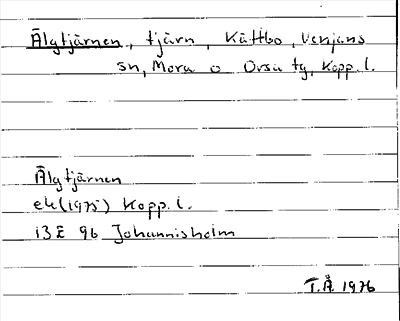 Älgtjärnen, tjärn, Kättbo, Venjans
sn, Mora o Orsa tg, Kopp. l.
Älgtjärnen
ek (1975) Kopp. l.
13E 9b Johannisholm
T.Å. 1976